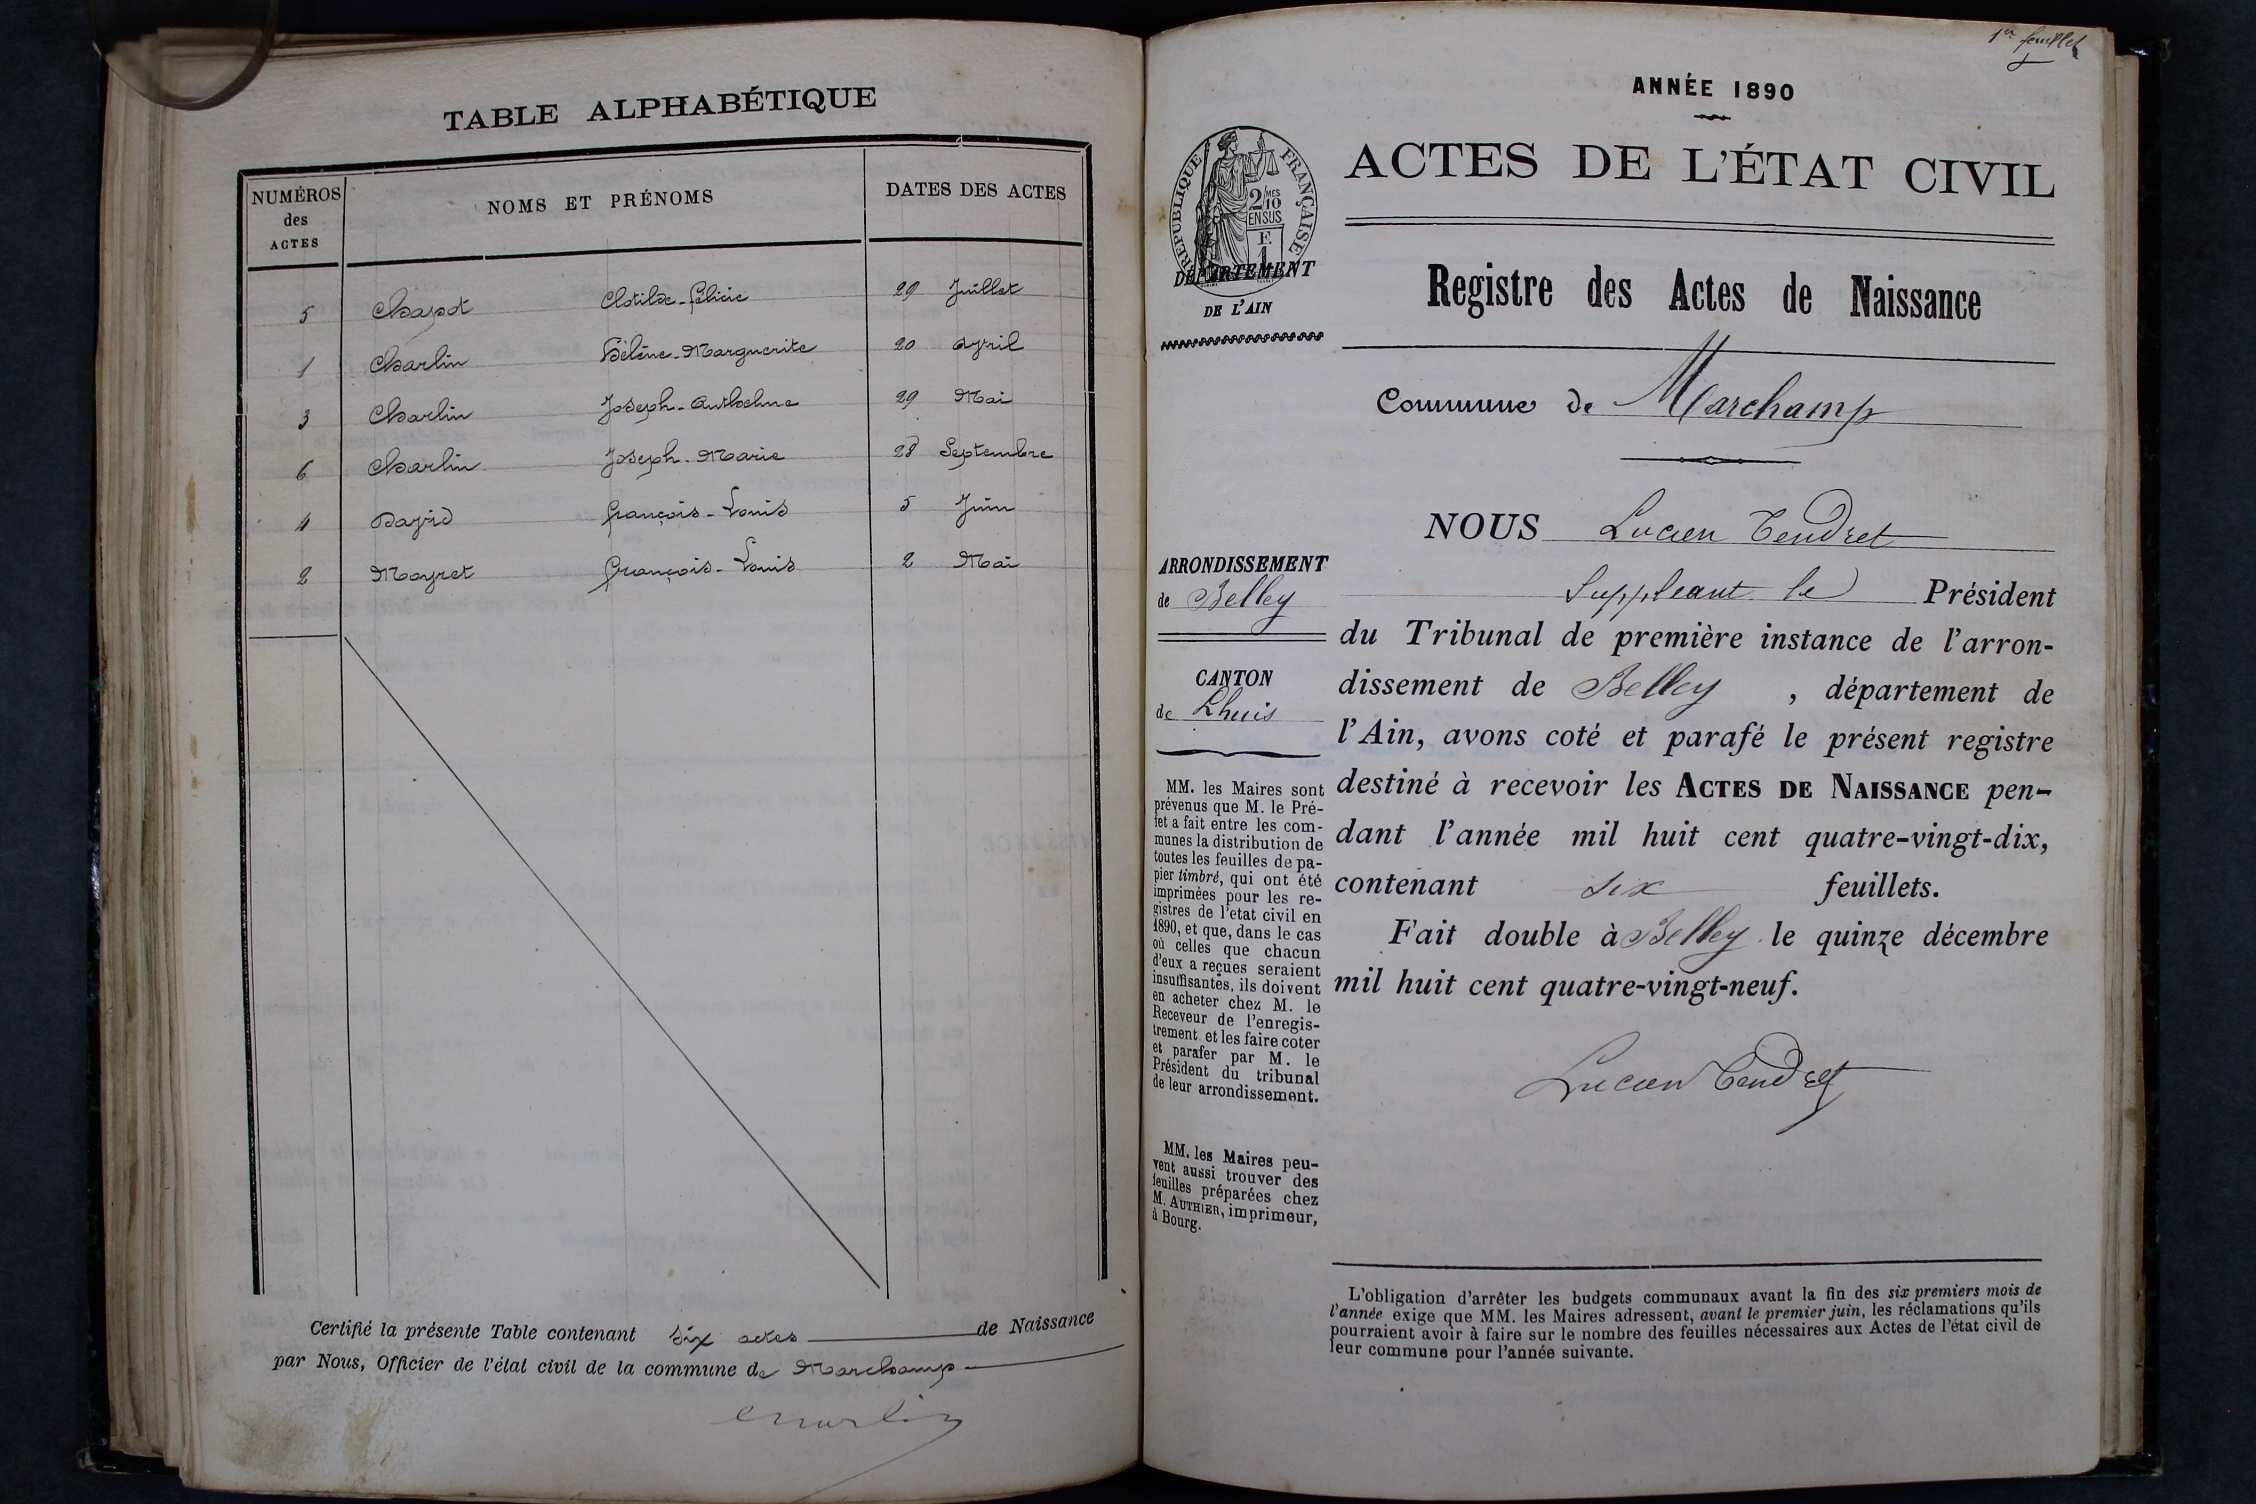 TABLE ALPHABÉTIQUE
NUMÉROS
des
ACTES
NOMS ET PRÉNOMS
DATES DES ACTES
5 Chapot Clotilde-Félicie 29 Juillet
1 Charlin Hélène-Marguerite 20 Avril
3 Charlin Joseph-Anthelme 29 Mai
6 Charlin Joseph-Marie 28 Septembre
4 David François-Louis 5 Juin
2 Mayret François-Louis 2 Mai
Certifié la présente Table contenant six actes de Naissance
par Nous, Officier de l'état civil de la commune de Marchamp
Charlin
1er feuillet
ANNÉE 1890
RÉPUBLIQUE FRANÇAISE
2/10 MES
EN SUS
F.
1
DÉPARTEMENT
DE L'AIN
ACTES DE L'ÉTAT CIVIL
Registre des Actes de Naissance
Commune de Marchamp
ARRONDISSEMENT
de Belley
CANTON
de Lhuis
MM. les Maires sont
prévenus que M. le Pré-
fet a fait entre les com-
munes la distribution de
toutes les feuilles de pa-
pier timbré, qui ont été
imprimées pour les re-
gistres de l'etat civil en
1890, et que, dans le cas
où celles que chacun
d'eux a reçues seraient
insuffisantes, ils doivent
en acheter chez M. le
Receveur de l'enregis-
trement et les faire coter
et parafer par M. le
Président du tribunal
de leur arrondissement.
MM. les Maires peu-
vent aussi trouver des
feuilles préparées chez
M. AUTHIER, imprimeur,
à Bourg.
NOUS Lucien Tendret
Suppléant le Président
du Tribunal de première instance de l'arron-
dissement de Belley , département de
l'Ain, avons coté et parafé le présent registre
destiné à recevoir les ACTES DE NAISSANCE pen-
dant l'année mil huit cent quatre-vingt-dix,
contenant six feuillets.
Fait double à Belley le quinze décembre
mil huit cent quatre-vingt-neuf.
Lucien Tendret
L'obligation d'arrêter les budgets communaux avant la fin des six premiers mois de
l'année exige que MM. les Maires adressent, avant le premier juin, les réclamations qu'ils
pourraient avoir à faire sur le nombre des feuilles nécessaires aux Actes de l'état civil de
leur commune pour l'année suivante.